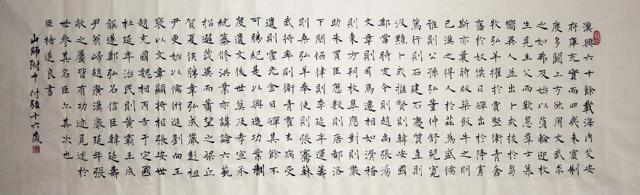 漢興六十餘載海內艾安
府庫充實而四夷未賓制
度多闕上方欲用文武求
之如弗及始以蒲輪迎枚
生見主父而歎息群士慕
嚮異人並出卜式拔於芻
牧弘羊擢於賈豎衛青
奮於奴僕日磾出於降虜
斯亦曩時版築飯牛之朋
已漢之得人於茲為盛儒
雅則公孫弘董仲舒兒寬
篤行則石建石慶質直則
汲黯卜式推賢則韓安國
鄭當時定令則趙禹張湯
文章則司馬遷相如滑稽
則東方朔枚皋應對則嚴
助朱買臣歷數則唐都洛
下閎協律則李延年運籌
則桑弘羊奉使則張騫蘇
武將率則衛青霍去病受
遺則霍光金日磾其餘不
可勝紀是以興造功業制
度遺文後世莫及孝宣承
統纂脩洪業亦講論六藝
招選茂異而蕭望之梁丘
賀夏侯勝韋玄成嚴彭祖
尹更始以儒術進劉向王
褒以文章顯將相則張安世
趙充國魏相丙吉于定國
杜延年治民則黃霸王成
龔遂鄭弘召信臣韓延壽
尹翁歸趙廣漢嚴延年張
敞之屬皆有功迹見述於
世參其名臣亦其次也
臣褚遂良書
山師附中 付強十六歲